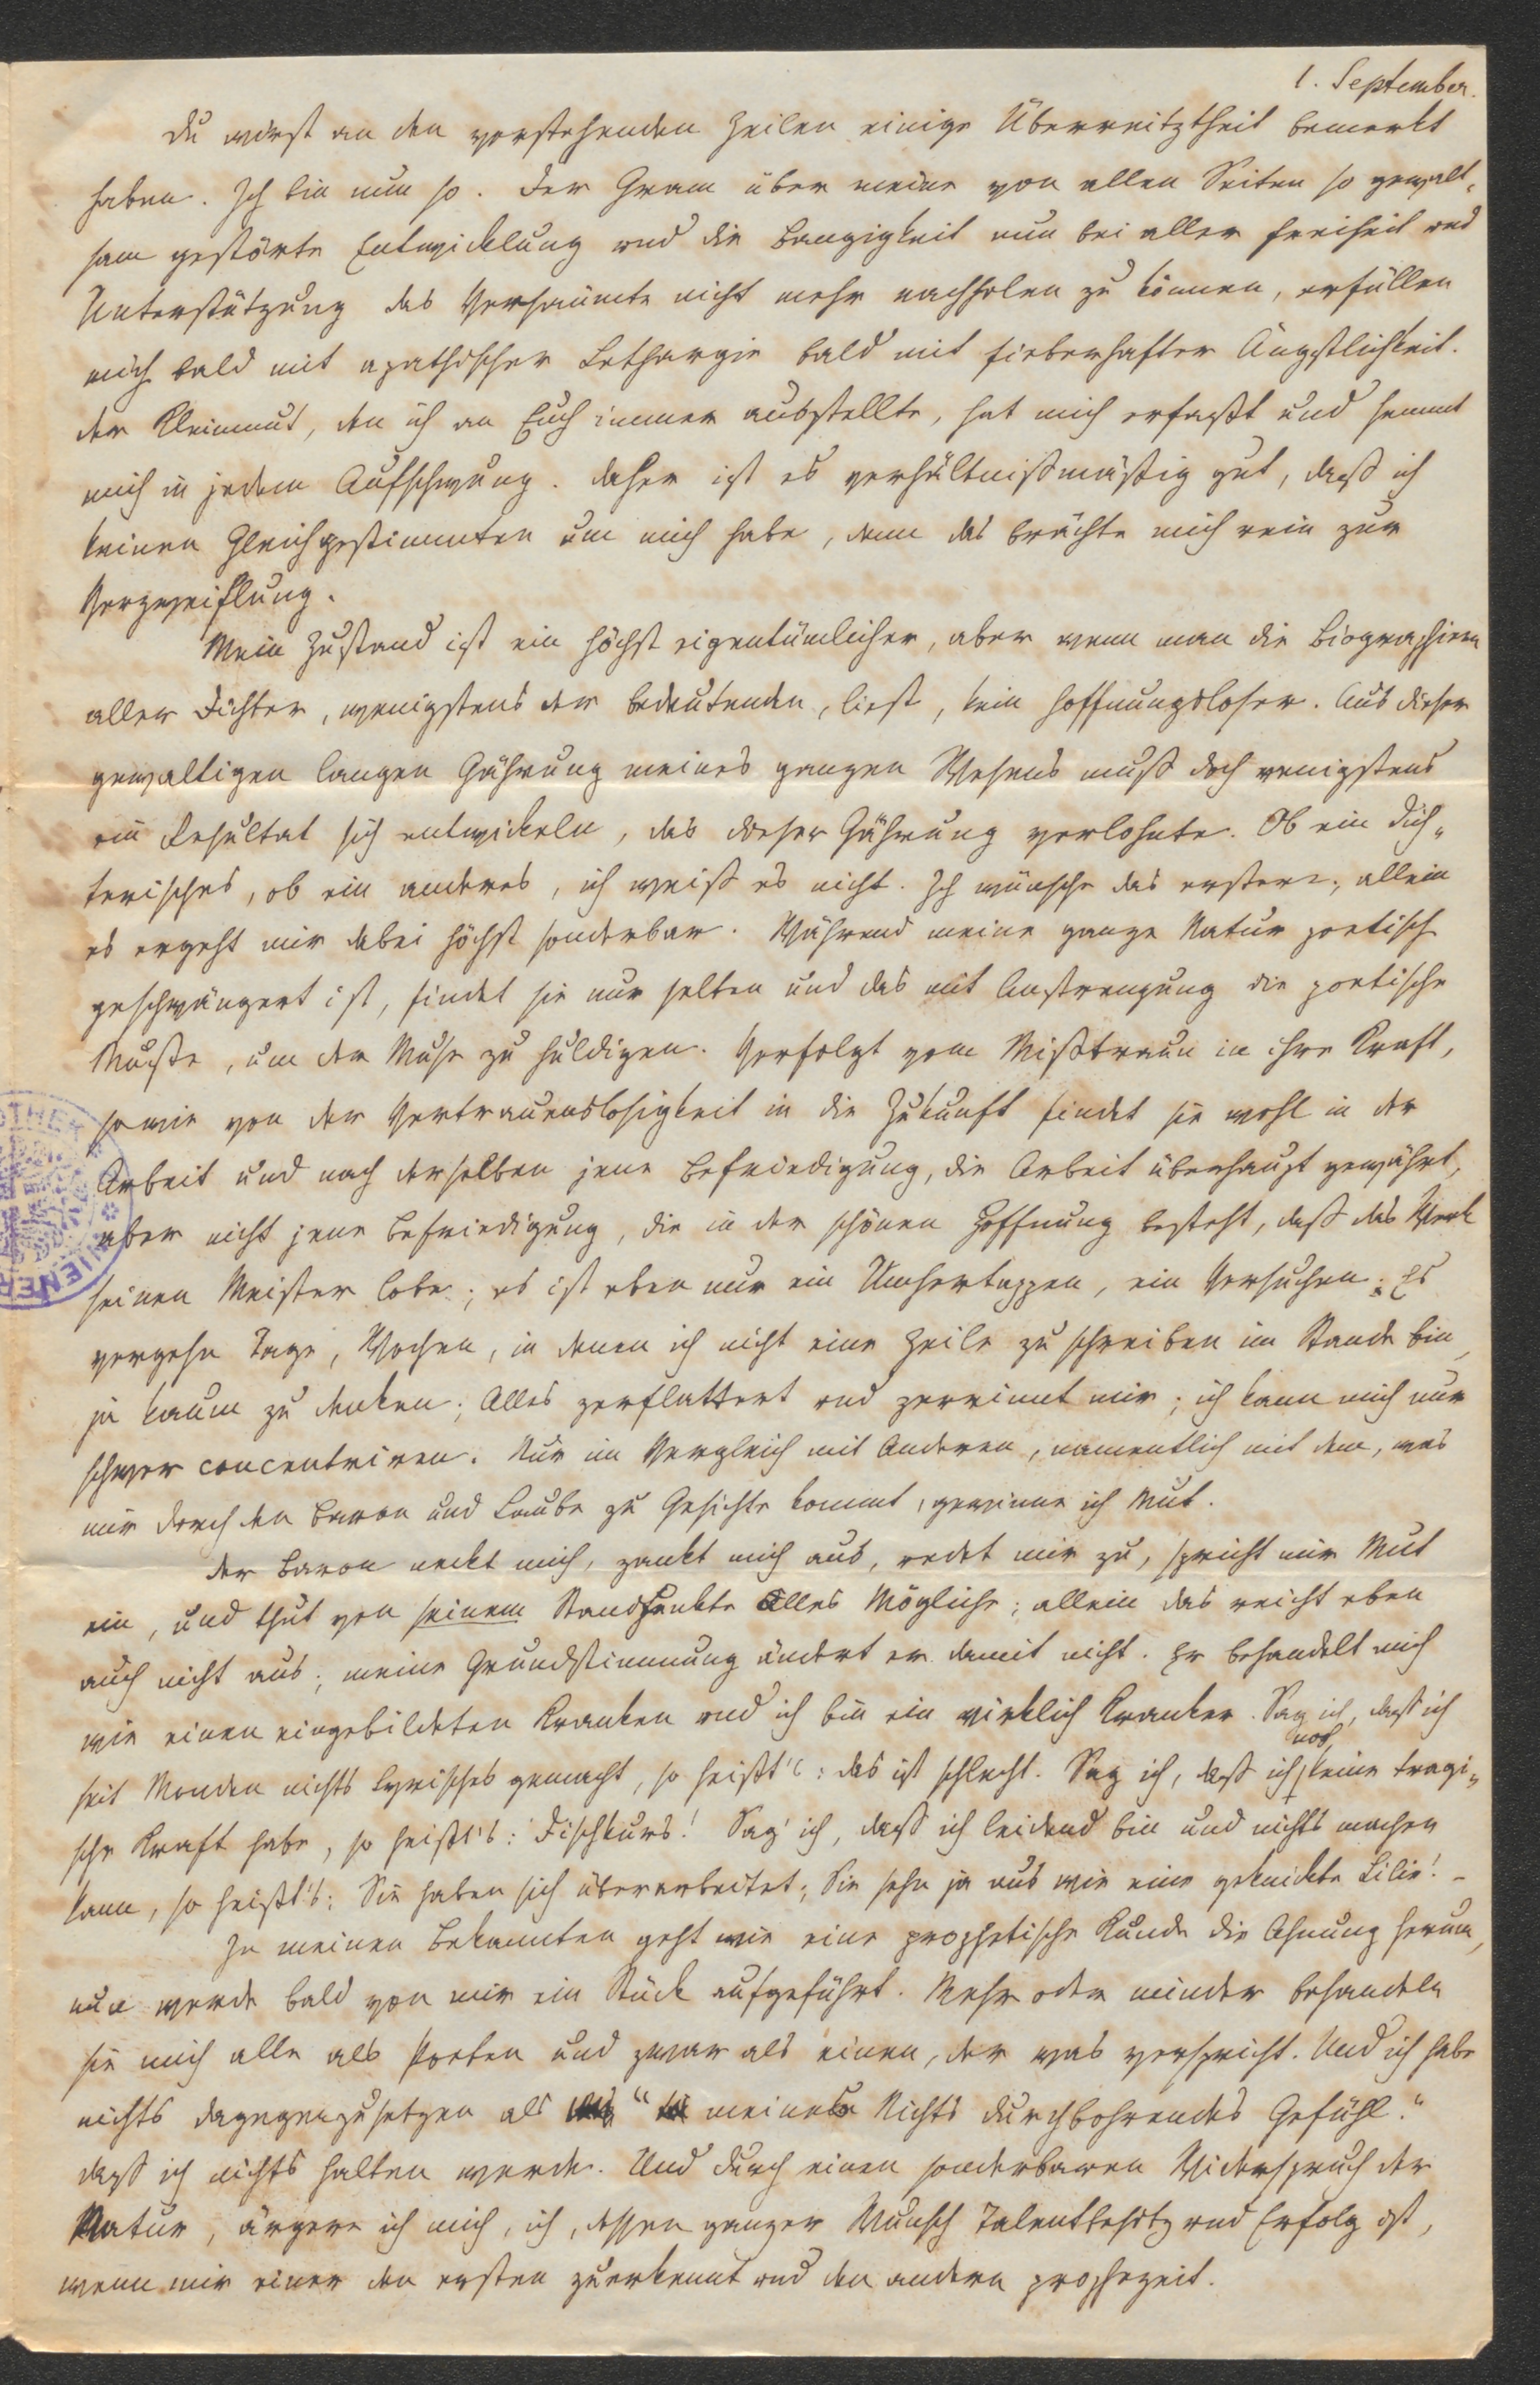 1. September.
Du wirst an den vorstehenden Zeilen einige Überreitztheit bemerkt
haben. Ich bin nun so. Der Gram über meine von allen Seiten so gewalt-
sam gestörte Entwicklung und die Bangigkeit nun bei aller Freiheit und
Unterstützung das Versäumte nicht mehr nachholen zu können, erfüllen
mich bald mit apathischer Lethargie bald mit fieberhafter Ängstlichkeit.
Der Kleinmut, den ich an Euch immer ausstellte, hat mich erfaßt und hemmt
mich in jedem Aufschwung. Daher ist es verhältnißmäßig gut, daß ich
keinen Gleichgestimmten um mich habe, denn das brächte mich rein zur
Verzweiflung.
Mein Zustand ist ein höchst eigentümlicher, aber wenn man die Biographieen
aller Dichter, wenigstens der bedeutenden, liest, kein hoffnungsloser. Aus dieser
gewaltigen langen Gährung meines ganzen Wesens muß doch wenigstens
ein Resultat sich entwickeln, das dieser Gährung verlohnte. Ob ein dich-
terisches, ob ein anderes, ich weiß es nicht. Ich wünsche das erstere, allein
es ergeht mir dabei höchst sonderbar. Während meine ganze Natur poetisch
geschwängert ist, findet sie nur selten und das mit Anstrengung die poetische
Muße, um der Muse zu huldigen. Verfolgt vom Mißtraun in ihre Kraft,
sowie von der Vertrauenslosigkeit in die Zukunft findet sie wohl in der
Arbeit und nach derselben jene Befriedigung, die Arbeit überhaupt gewährt,
aber nicht jene Befriedigung, die in der schönen Hoffnung besteht, daß das Werk
seinen Meister lobe; es ist eben nur ein Umhertappen, ein Versuchen. Es
vergehn Tage, Wochen, in denen ich nicht eine Zeile zu schreiben im Stande bin,
ja kaum zu denken; Alles zerflattert und zerrinnt mir; ich kann mich nur
schwer concentriren. Nur im Vergleich mit Anderen, namentlich mit dem, was
mir durch den Baron und Laube zu Gesichte kommt, gewinne ich Mut.
Der Baron neckt mich, zankt mich aus, redet mir zu, spricht mir Mut
ein, und thut von seinem Standpunkte Alles Mögliche; allein das reicht eben
auch nicht aus; meine Grundstimmung ändert er damit nicht. Er behandelt mich
wie einen eingebildeten Kranken und ich bin ein wirklich Kranker. Sag ich, daß ich
seit Monden nichts Lyrisches gemacht, so heißt's: das ist schlecht. Sag ich, daß ich noch keine tragi-
sche Kraft habe, so heißt's: Dischkurs! Sag' ich, daß ich leidend bin und nichts machen
kann, so heißt's: Sie haben sich überarbeitet; Sie sehn ja aus wie eine geknickte Lilie! –
In meinen Bekannten geht wie eine prophetische Kunde die Ahnung herum,
nun werde bald von mir ein Stück aufgeführt. Mehr oder minder behandeln
sie mich alle als Poeten und zwar als einen, der was verspricht. Und ich habe
nichts dagegenzusetzen als " meines Nichts durchbohrendes Gefühl."
daß ich nichts halten werde. Und durch einen sonderbaren Widerspruch der
Natur, ärgere ich mich, ich, dessen ganzer Wunsch Talentbesitz und Erfolg ist,
wenn mir einer den ersten zuerkennt und den andern prophezeit.
WIENER